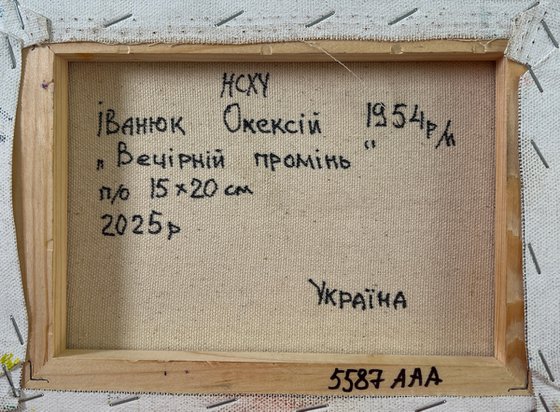 НСХУ
Іванюк Олексій 1954 р/н
„Вечірній промінь“
п/о 15×20 см
2025р
Україна
5587 ААА